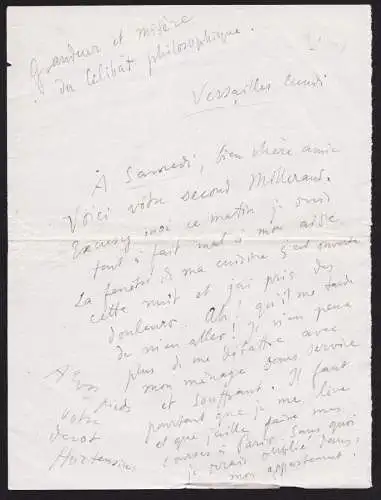 Grandeur et misère
du célibat philosophique.
Versailles lundi
À Samedi, bien chère amie
Voici votre second Millerand.
Excusez moi ce matin je suis
tout à fait mal à mon aise
La fenêtre de ma cuisine s'est ouverte
cette nuit et j'ai pris des
douleurs. Ah! qu'il me tarde
de m'en aller! Je n'en peux
plus de me débattre avec
mon ménage sans service
et souffrant. Il faut
pourtant que je me lève
et que j'aille faire mes
courses à Paris sans quoi
je serais oublié dans
mon appartement.
A vos
pieds
votre
dévot
Hortensius